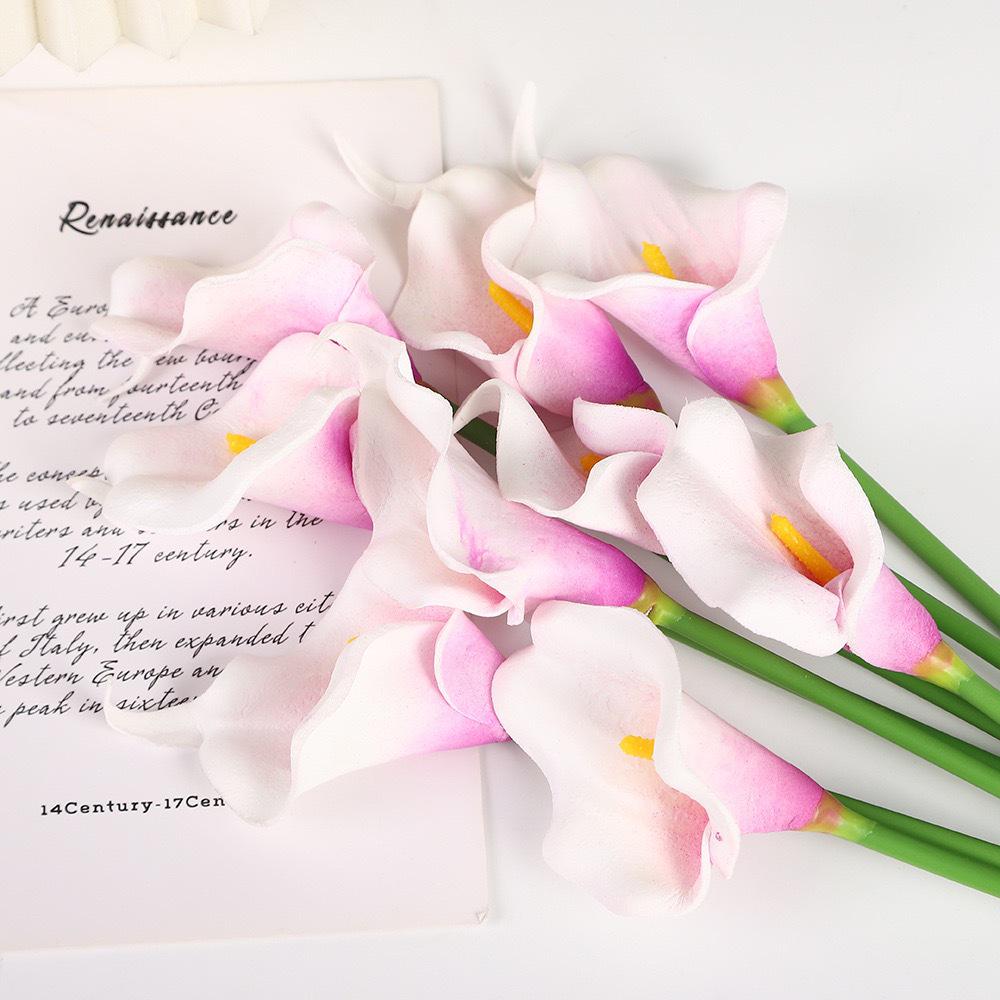 Renaissance
A Euro
and cu
llecting the ew bourg
and from fourteenth
to seventeenth C
he concep
s used
writers and s rs in the
14-17 century.
irst grew up in various cit
f Italy, then expanded t
Western Europe an
peak in sixtee
14Century-17Cen